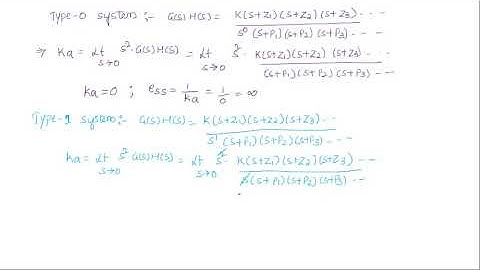 Type-0 system :- G(s)H(s) = K(s+Z1)(s+Z2)(s+Z3) - - -
s⁰ (s+P1)(s+P2)(s+P3) - - -
⇒ Ka = Lt s→0 s²·G(s)H(s) = Lt s→0 s² · K(s+Z1)(s+Z2)(s+Z3) - - -
(s+P1)(s+P2)(s+P3) - - -
Ka=0 ; ess = 1/Ka = 1/0 = ∞
Type-1 system :- G(s)H(s) = K(s+Z1)(s+Z2)(s+Z3) - -
s¹ (s+P1)(s+P2)(s+P3) - -
Ka = Lt s→0 s² G(s)H(s) = Lt s→0 s² · K(s+Z1)(s+Z2)(s+Z3) - -
s(s+P1)(s+P2)(s+P3) - -